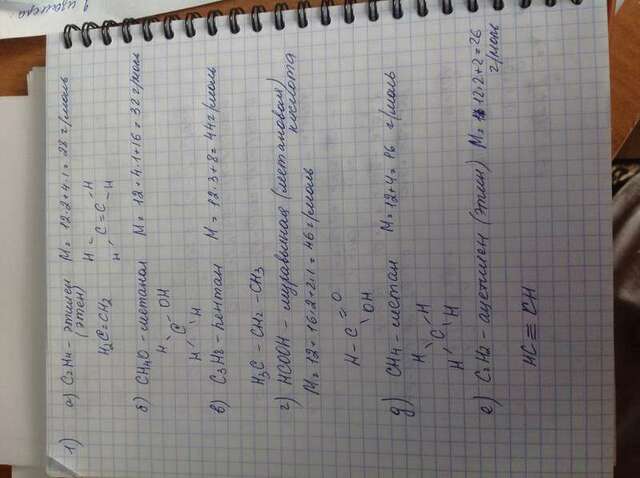 1) а) C2H4 - этилен (этен) M = 12·2+4·1 = 28 г/моль
H2C=CH2
H - C = C - H
H H
б) CH4O - метанол M = 12+4·1+16 = 32 г/моль
H OH
C
H H
в) C3H8 - пентан M = 12·3+8 = 44 г/моль
H3C - CH2 - CH3
г) HCOOH - муравьиная (метановая) кислота
M = 12+16·2+2·1 = 46 г/моль
H - C = O
OH
д) CH4 - метан M = 12+4 = 16 г/моль
H H
C
H H
е) C2H2 - ацетилен (этин) M = 12·2+2 = 26 г/моль
HC ≡ CH